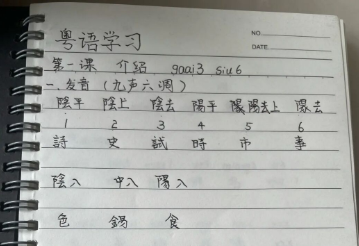 粤语学习
NO.
DATE
第一课 介绍 gaai3 siu6
一.发音（九声六调）
陰平 陰上 陰去 陽平 陽上 陽去
1 2 3 4 5 6
詩 史 試 時 市 事
陰入 中入 陽入
色 錫 食